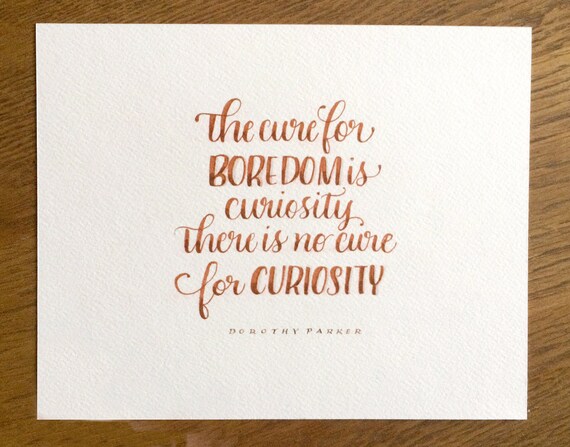 The cure for
BOREDOM is
curiosity
There is no cure
for CURIOSITY
DOROTHY PARKER